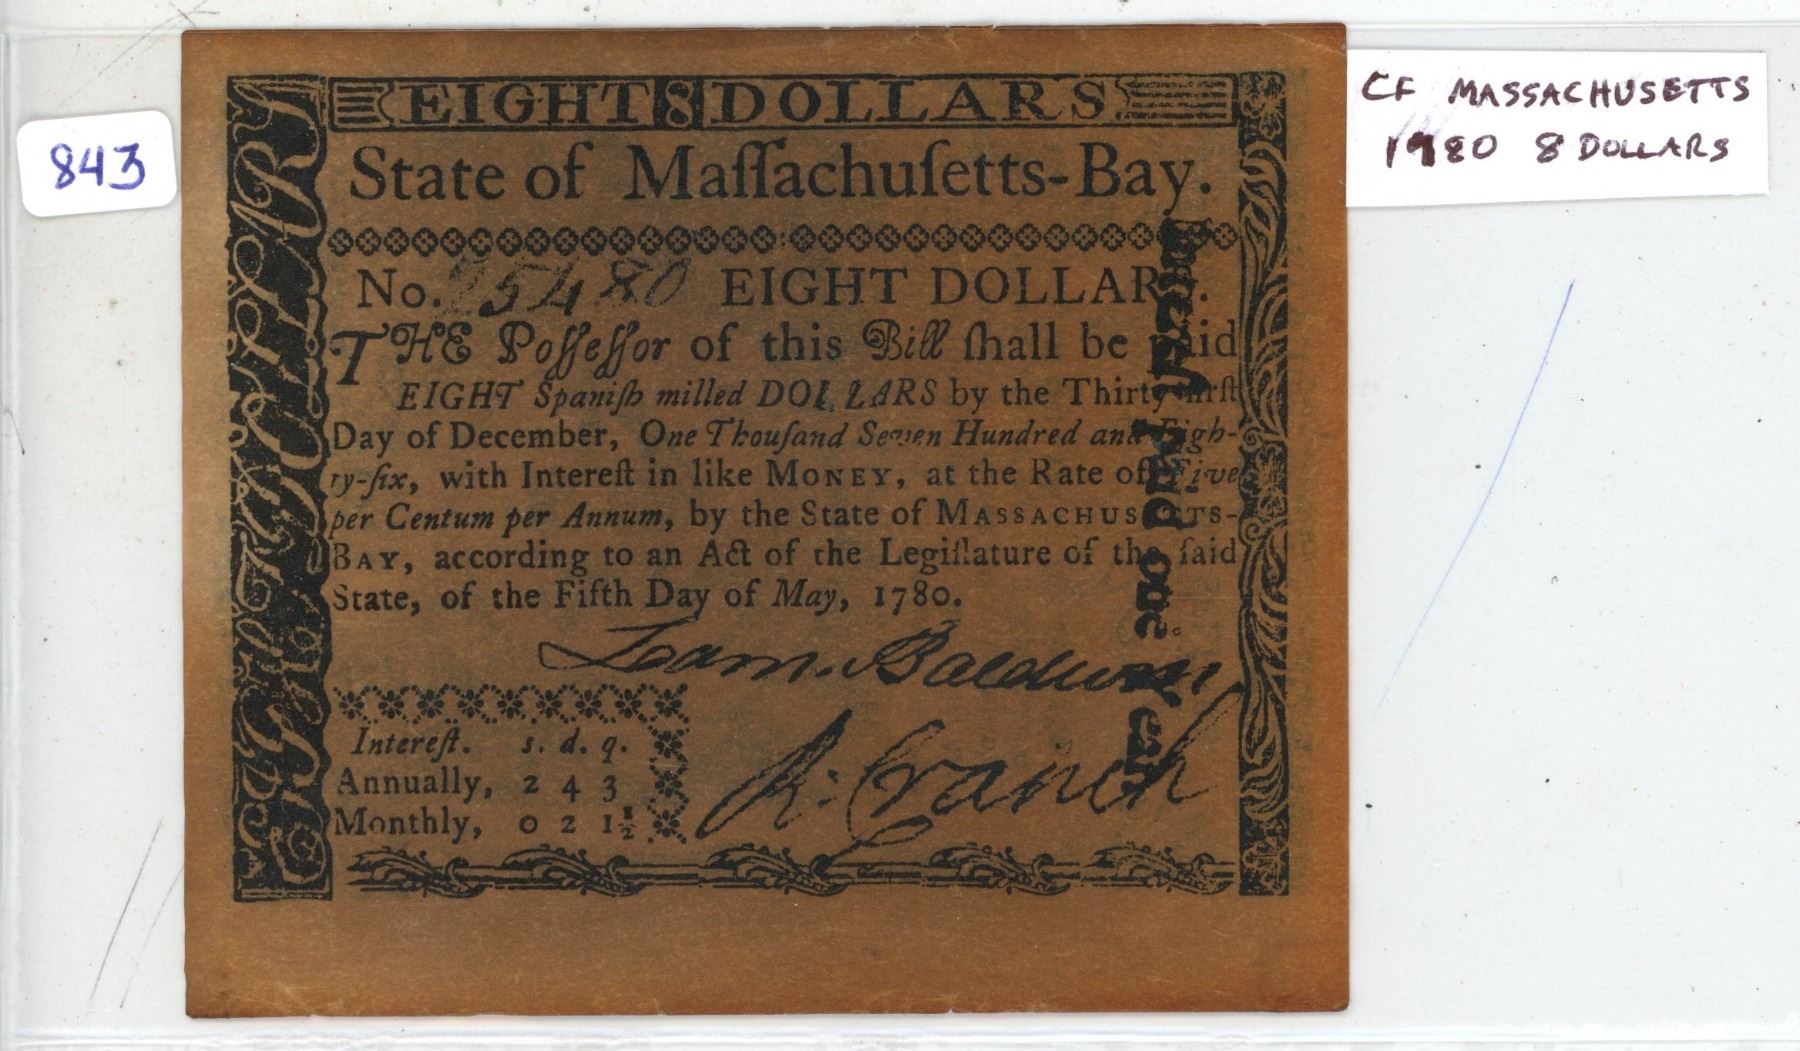 843
CF MASSACHUSETTS
1780 8 DOLLARS
EIGHT 8 DOLLARS
EIGHT DOLLARS
State of Maſſachuſetts-Bay.
No. 25480 EIGHT DOLLARS.
THE Poſſeſſor of this Bill ſhall be paid
EIGHT Spaniſh milled DOLLARS by the Thirty-firſt
Day of December, One Thouſand Seven Hundred and Eigh-
ty-ſix, with Intereſt in like MONEY, at the Rate of Five
per Centum per Annum, by the State of MASSACHUSETTS-
BAY, according to an Act of the Legiſlature of the ſaid
State, of the Fifth Day of May, 1780.
Loam. Baldwin
R. Cranch
Intereſt. s. d. q.
Annually, 2 4 3
Monthly, 0 2 1½
Int. paid one Year.